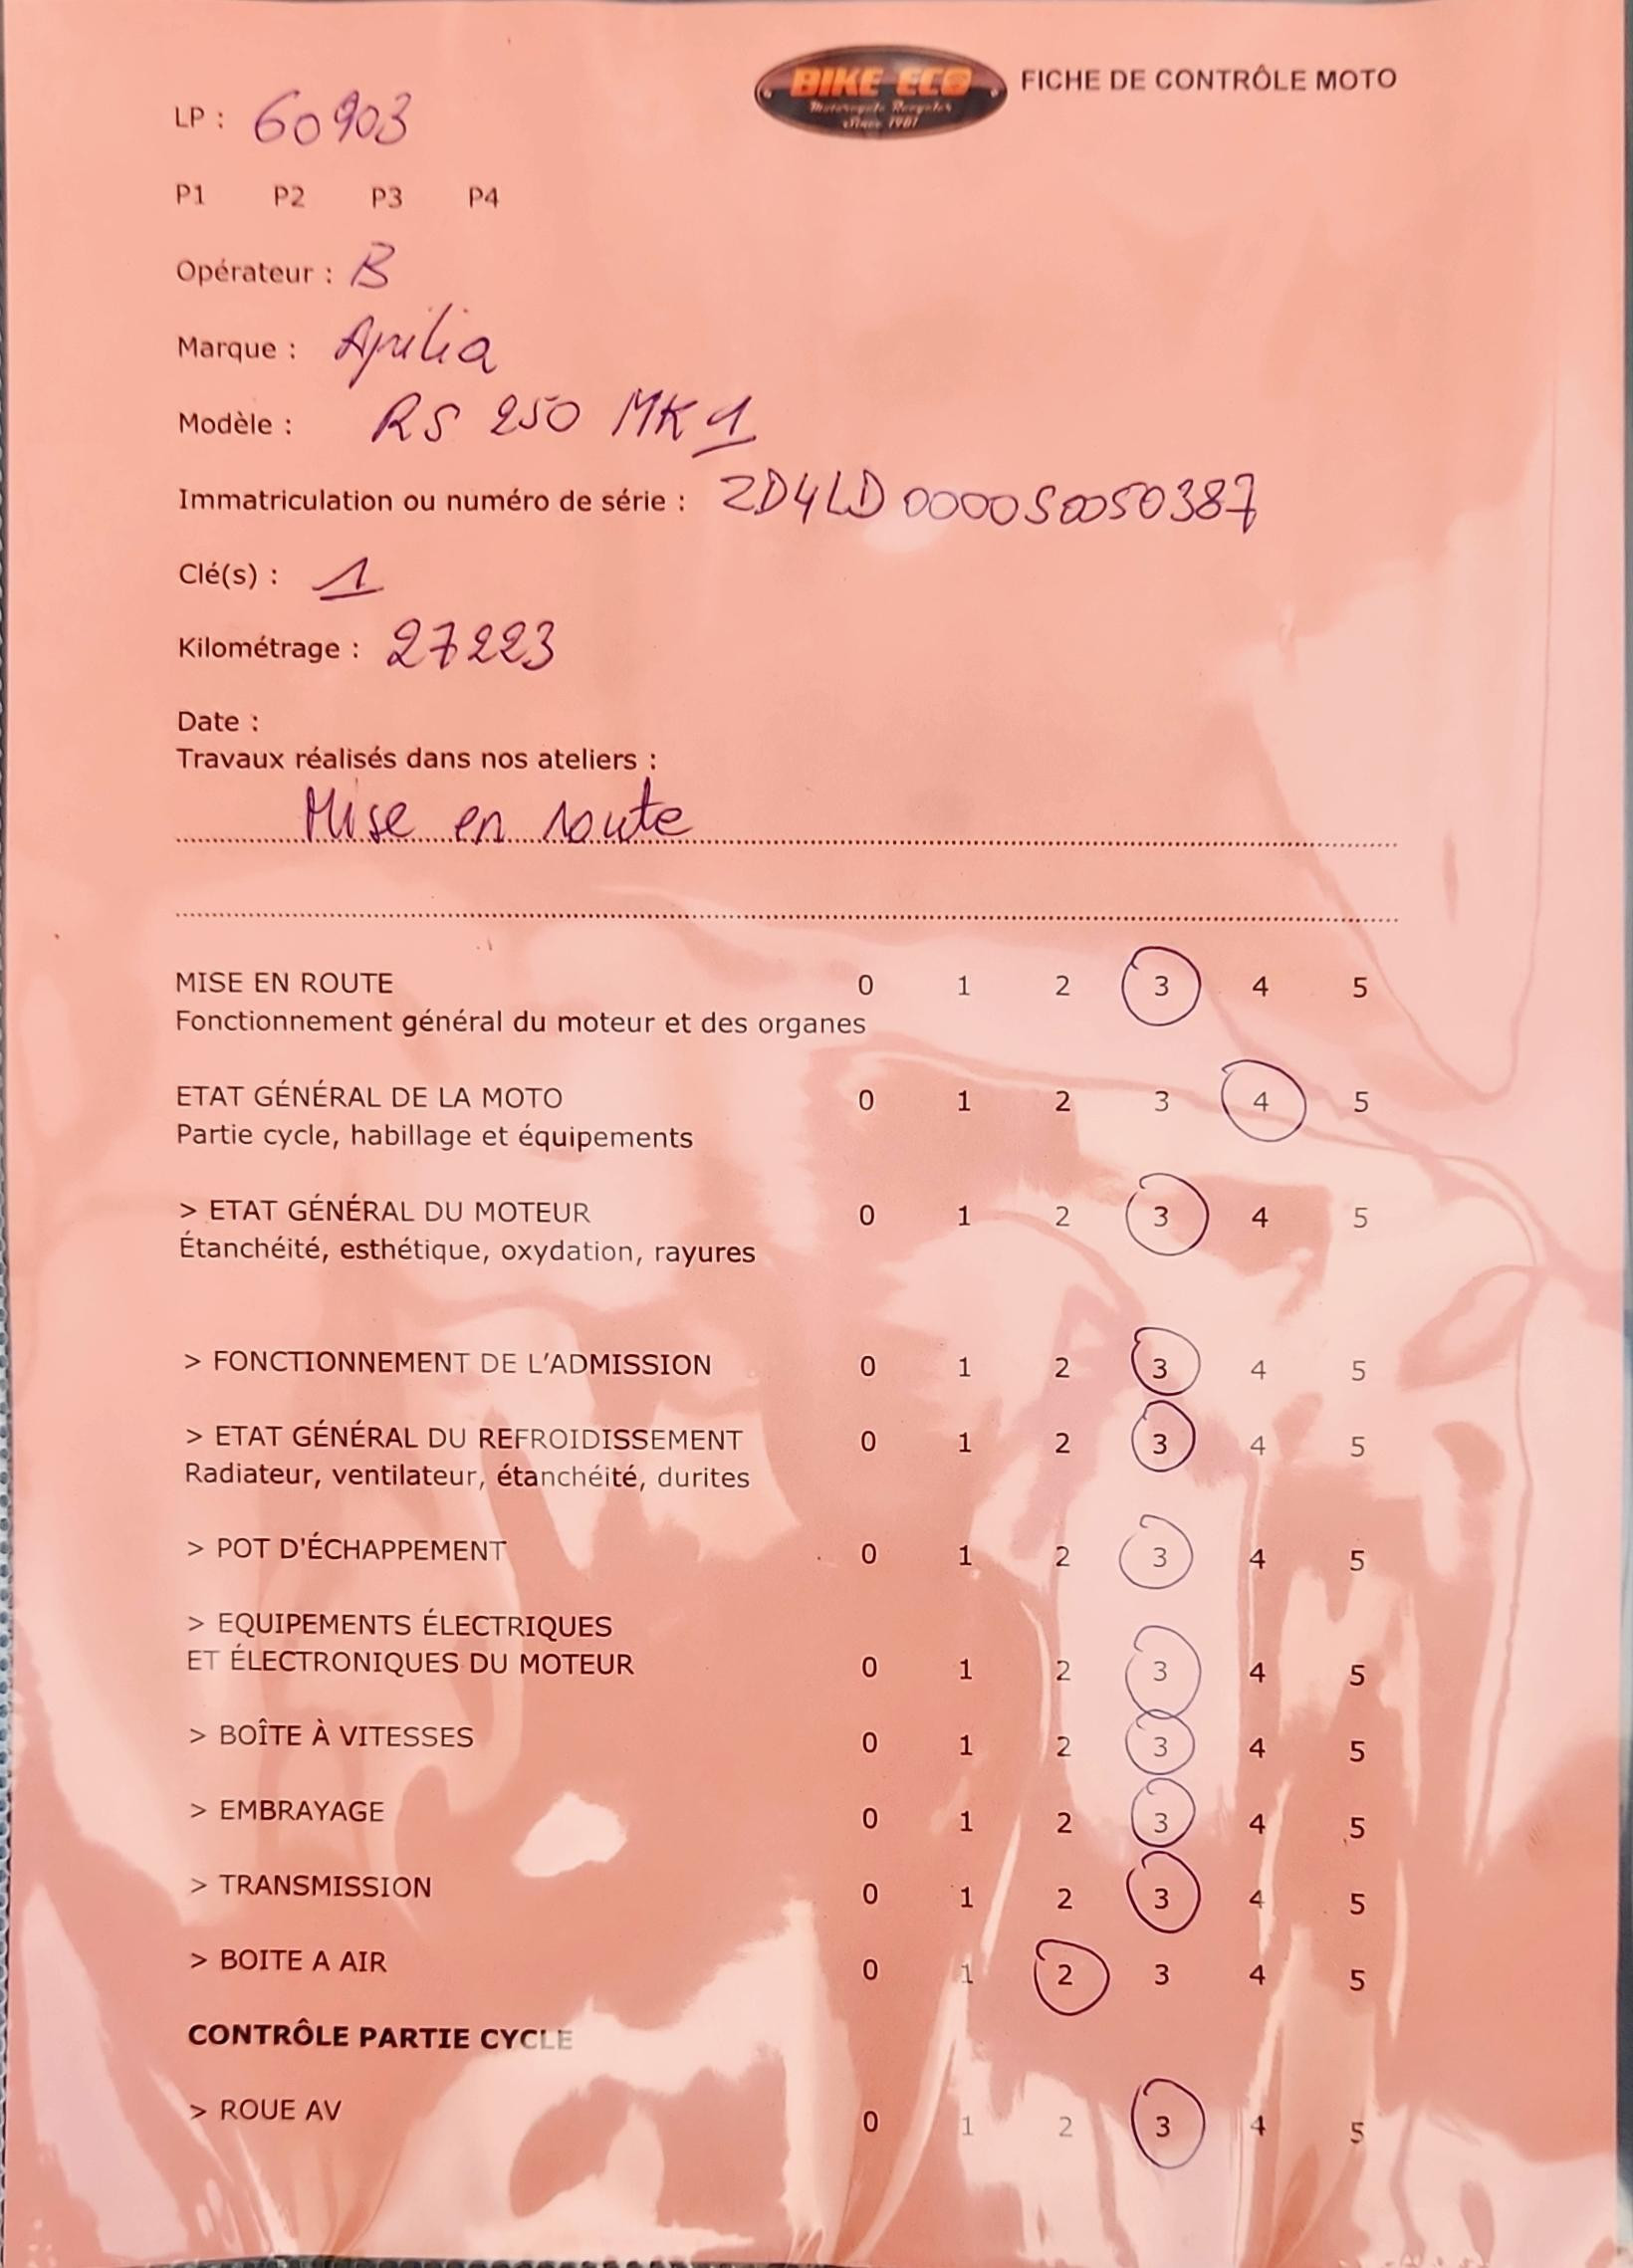 BIKE ECO
Motorcycle Recycler
Since 1981
FICHE DE CONTRÔLE MOTO
LP : 60903
P1 P2 P3 P4
Opérateur : B
Marque : Aprilia
Modèle : RS 250 MK1
Immatriculation ou numéro de série : ZD4LD0000S0050387
Clé(s) : 1
Kilométrage : 27223
Date :
Travaux réalisés dans nos ateliers :
Mise en route
MISE EN ROUTE 0 1 2 3 4 5
Fonctionnement général du moteur et des organes
ETAT GÉNÉRAL DE LA MOTO 0 1 2 3 4 5
Partie cycle, habillage et équipements
> ETAT GÉNÉRAL DU MOTEUR 0 1 2 3 4 5
Étanchéité, esthétique, oxydation, rayures
> FONCTIONNEMENT DE L'ADMISSION 0 1 2 3 4 5
> ETAT GÉNÉRAL DU REFROIDISSEMENT 0 1 2 3 4 5
Radiateur, ventilateur, étanchéité, durites
> POT D'ÉCHAPPEMENT 0 1 2 3 4 5
> EQUIPEMENTS ÉLECTRIQUES
ET ÉLECTRONIQUES DU MOTEUR 0 1 2 3 4 5
> BOÎTE À VITESSES 0 1 2 3 4 5
> EMBRAYAGE 0 1 2 3 4 5
> TRANSMISSION 0 1 2 3 4 5
> BOITE A AIR 0 1 2 3 4 5
CONTRÔLE PARTIE CYCLE
> ROUE AV 0 1 2 3 4 5